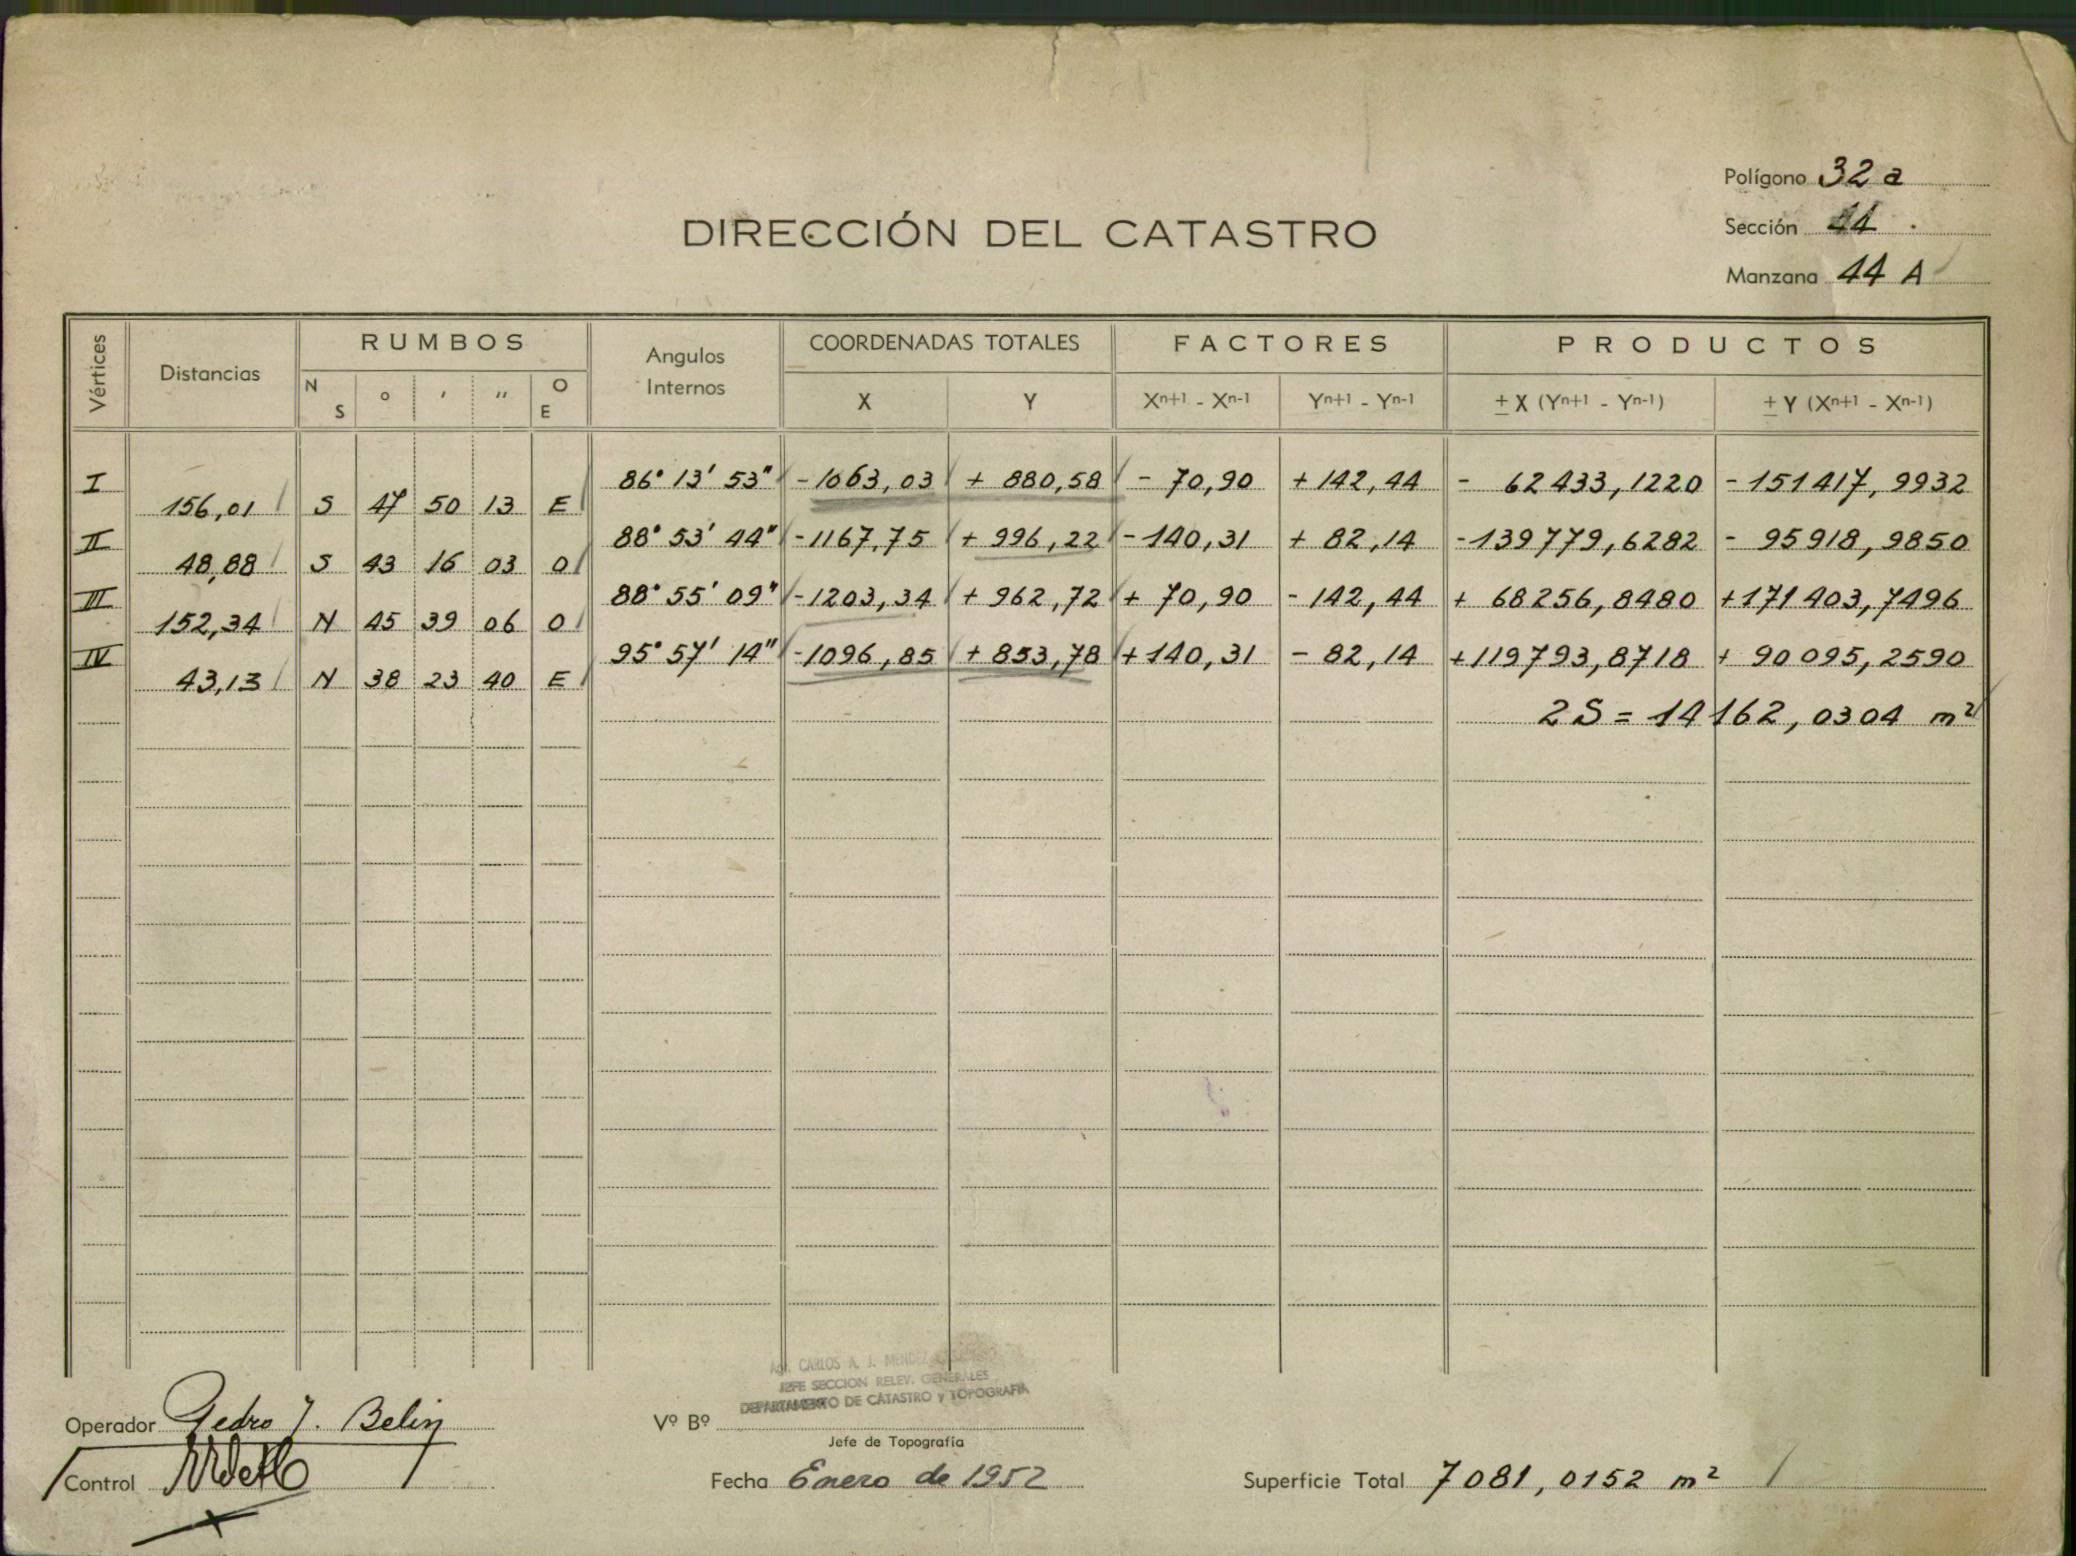 Polígono 32 a
DIRECCIÓN DEL CATASTRO
Sección 44 .
Manzana 44 A
Vértices Distancias RUMBOS Angulos Internos COORDENADAS TOTALES FACTORES PRODUCTOS
N S ° ' " O E X Y Xn+1 - Xn-1 Yn+1 - Yn-1 ± X (Yn+1 - Yn-1) ± Y (Xn+1 - Xn-1)
I 86° 13' 53" -1063,03 + 880,58 - 70,90 +142,44 - 62433,1220 -151417,9932
156,01 S 47 50 13 E
II 88° 53' 44" -1167,75 + 996,22 -140,31 + 82,14 -139779,6282 - 95918,9850
48,88 S 43 16 03 O
III 88° 55' 09" -1203,34 + 962,72 + 70,90 -142,44 + 68256,8480 +171403,7496
152,34 N 45 39 06 O
IV 95° 57' 14" -1096,85 + 853,78 +140,31 - 82,14 +119793,8718 + 90095,2590
43,13 N 38 23 40 E
2S = 14162,0304 m²
CARLOS A. J. MENDEZ
JEFE SECCION RELEV. GENERALES
DEPARTAMENTO DE CATASTRO y TOPOGRAFIA
Operador Pedro J. Belin
Vº Bº
Jefe de Topografía
Control
Fecha Enero de 1952
Superficie Total 7081,0152 m²